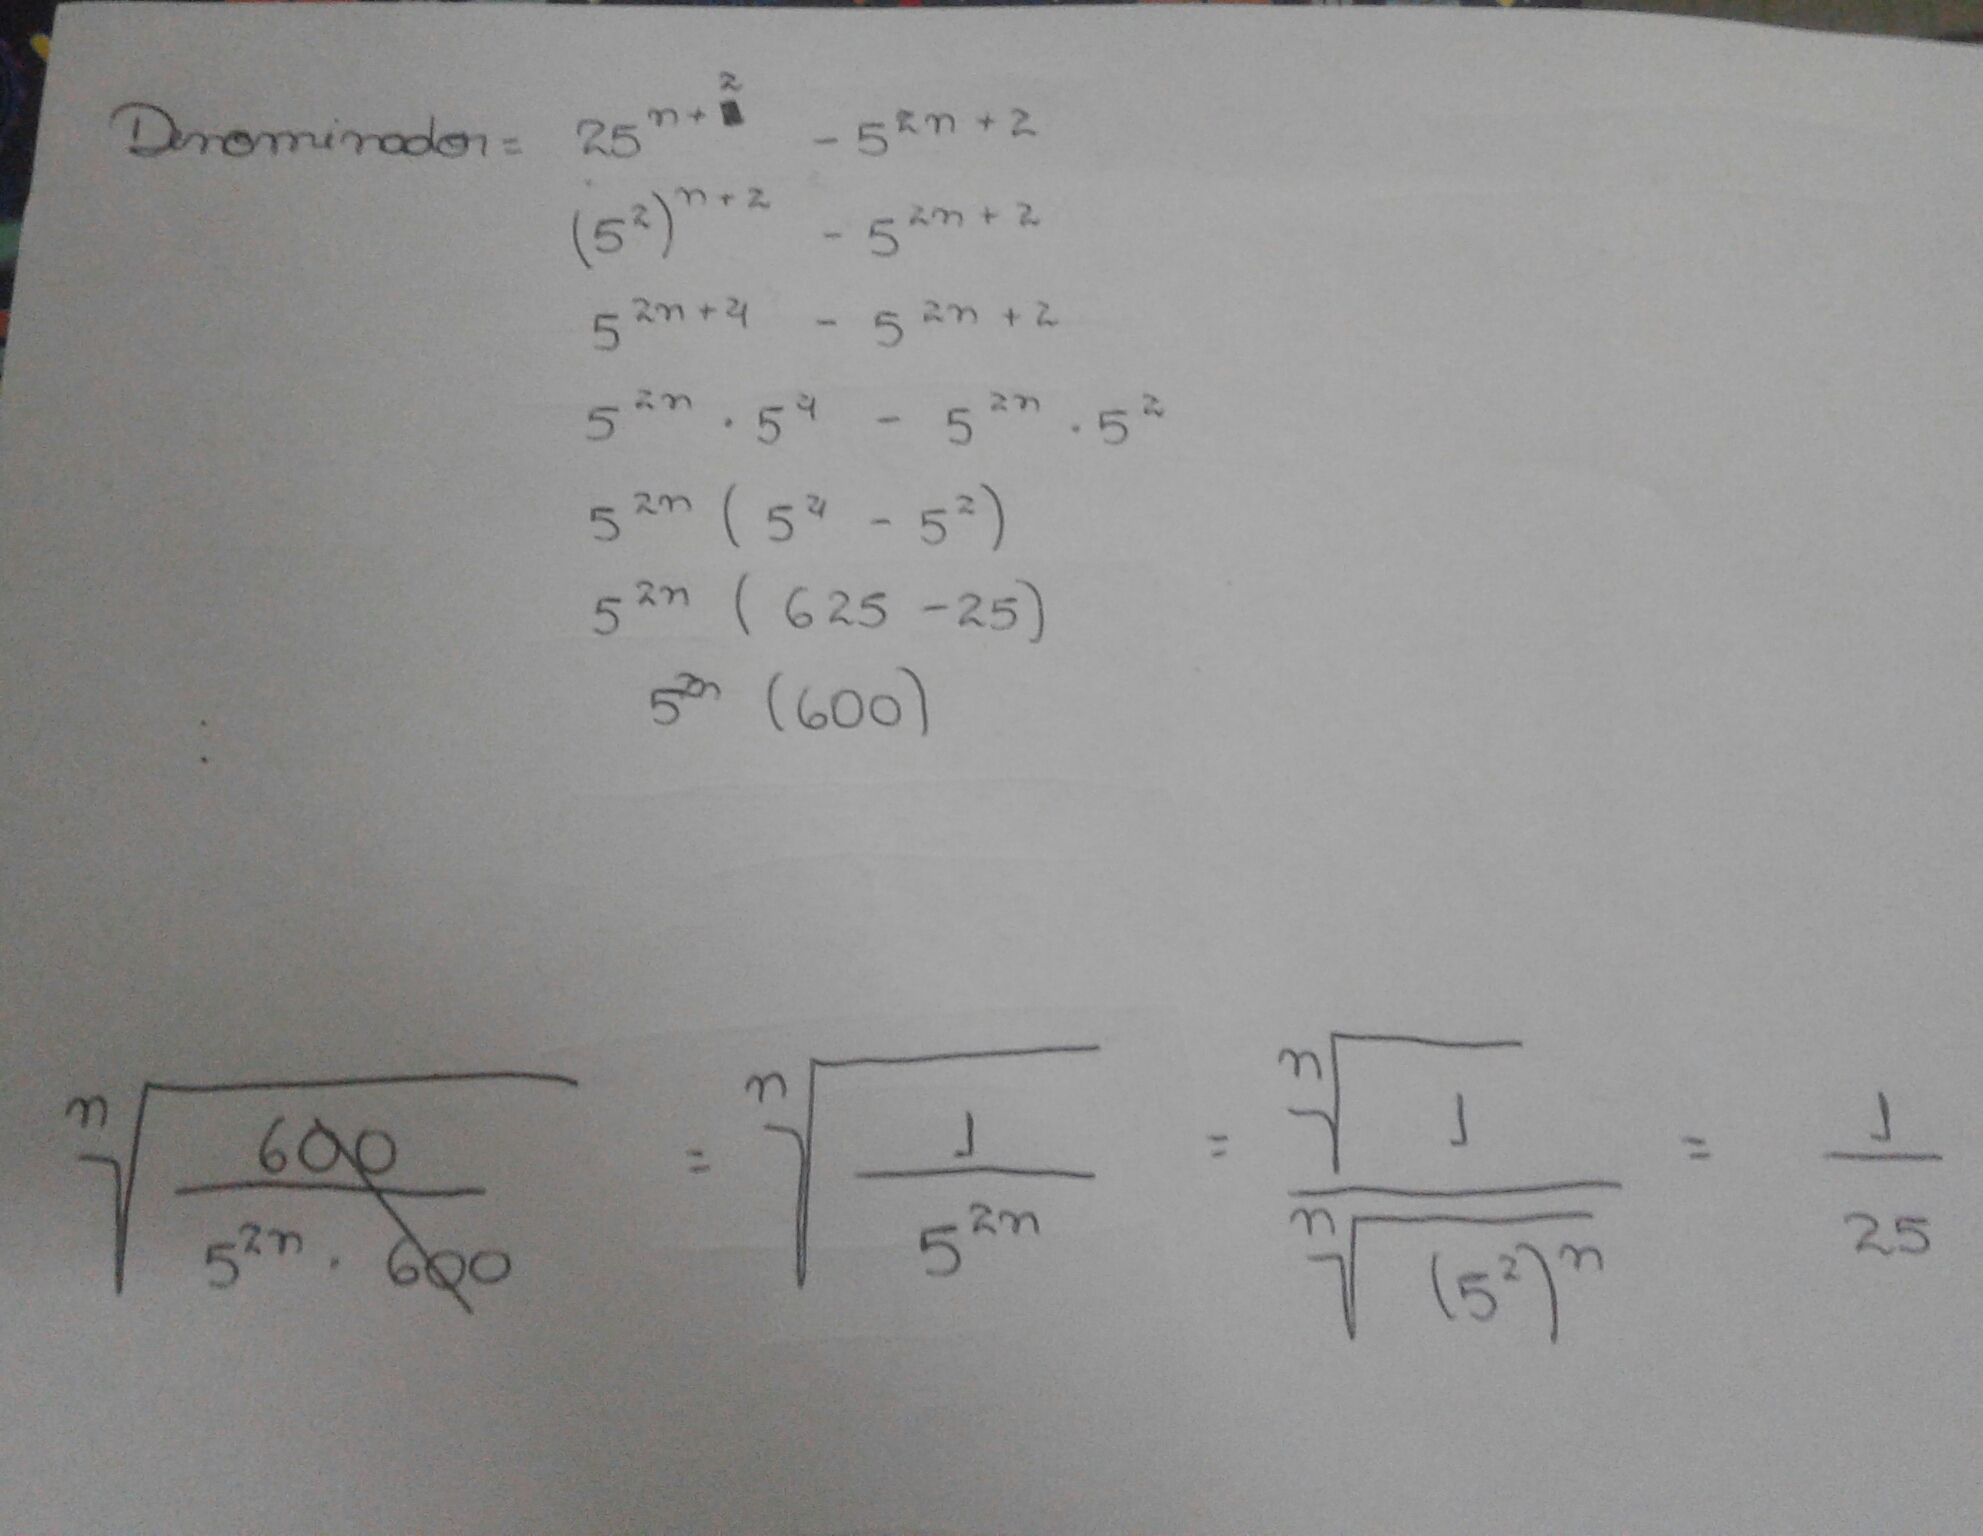 Denominador = 25^{n+2} - 5^{2n+2}
(5^2)^{n+2} - 5^{2n+2}
5^{2n+4} - 5^{2n+2}
5^{2n} . 5^4 - 5^{2n} . 5^2
5^{2n} (5^4 - 5^2)
5^{2n} (625 - 25)
5^{2n} (600)
\sqrt[n]{\frac{600}{5^{2n} . 600}} = \sqrt[n]{\frac{1}{5^{2n}}} = \frac{\sqrt[n]{1}}{\sqrt[n]{(5^2)^n}} = \frac{1}{25}